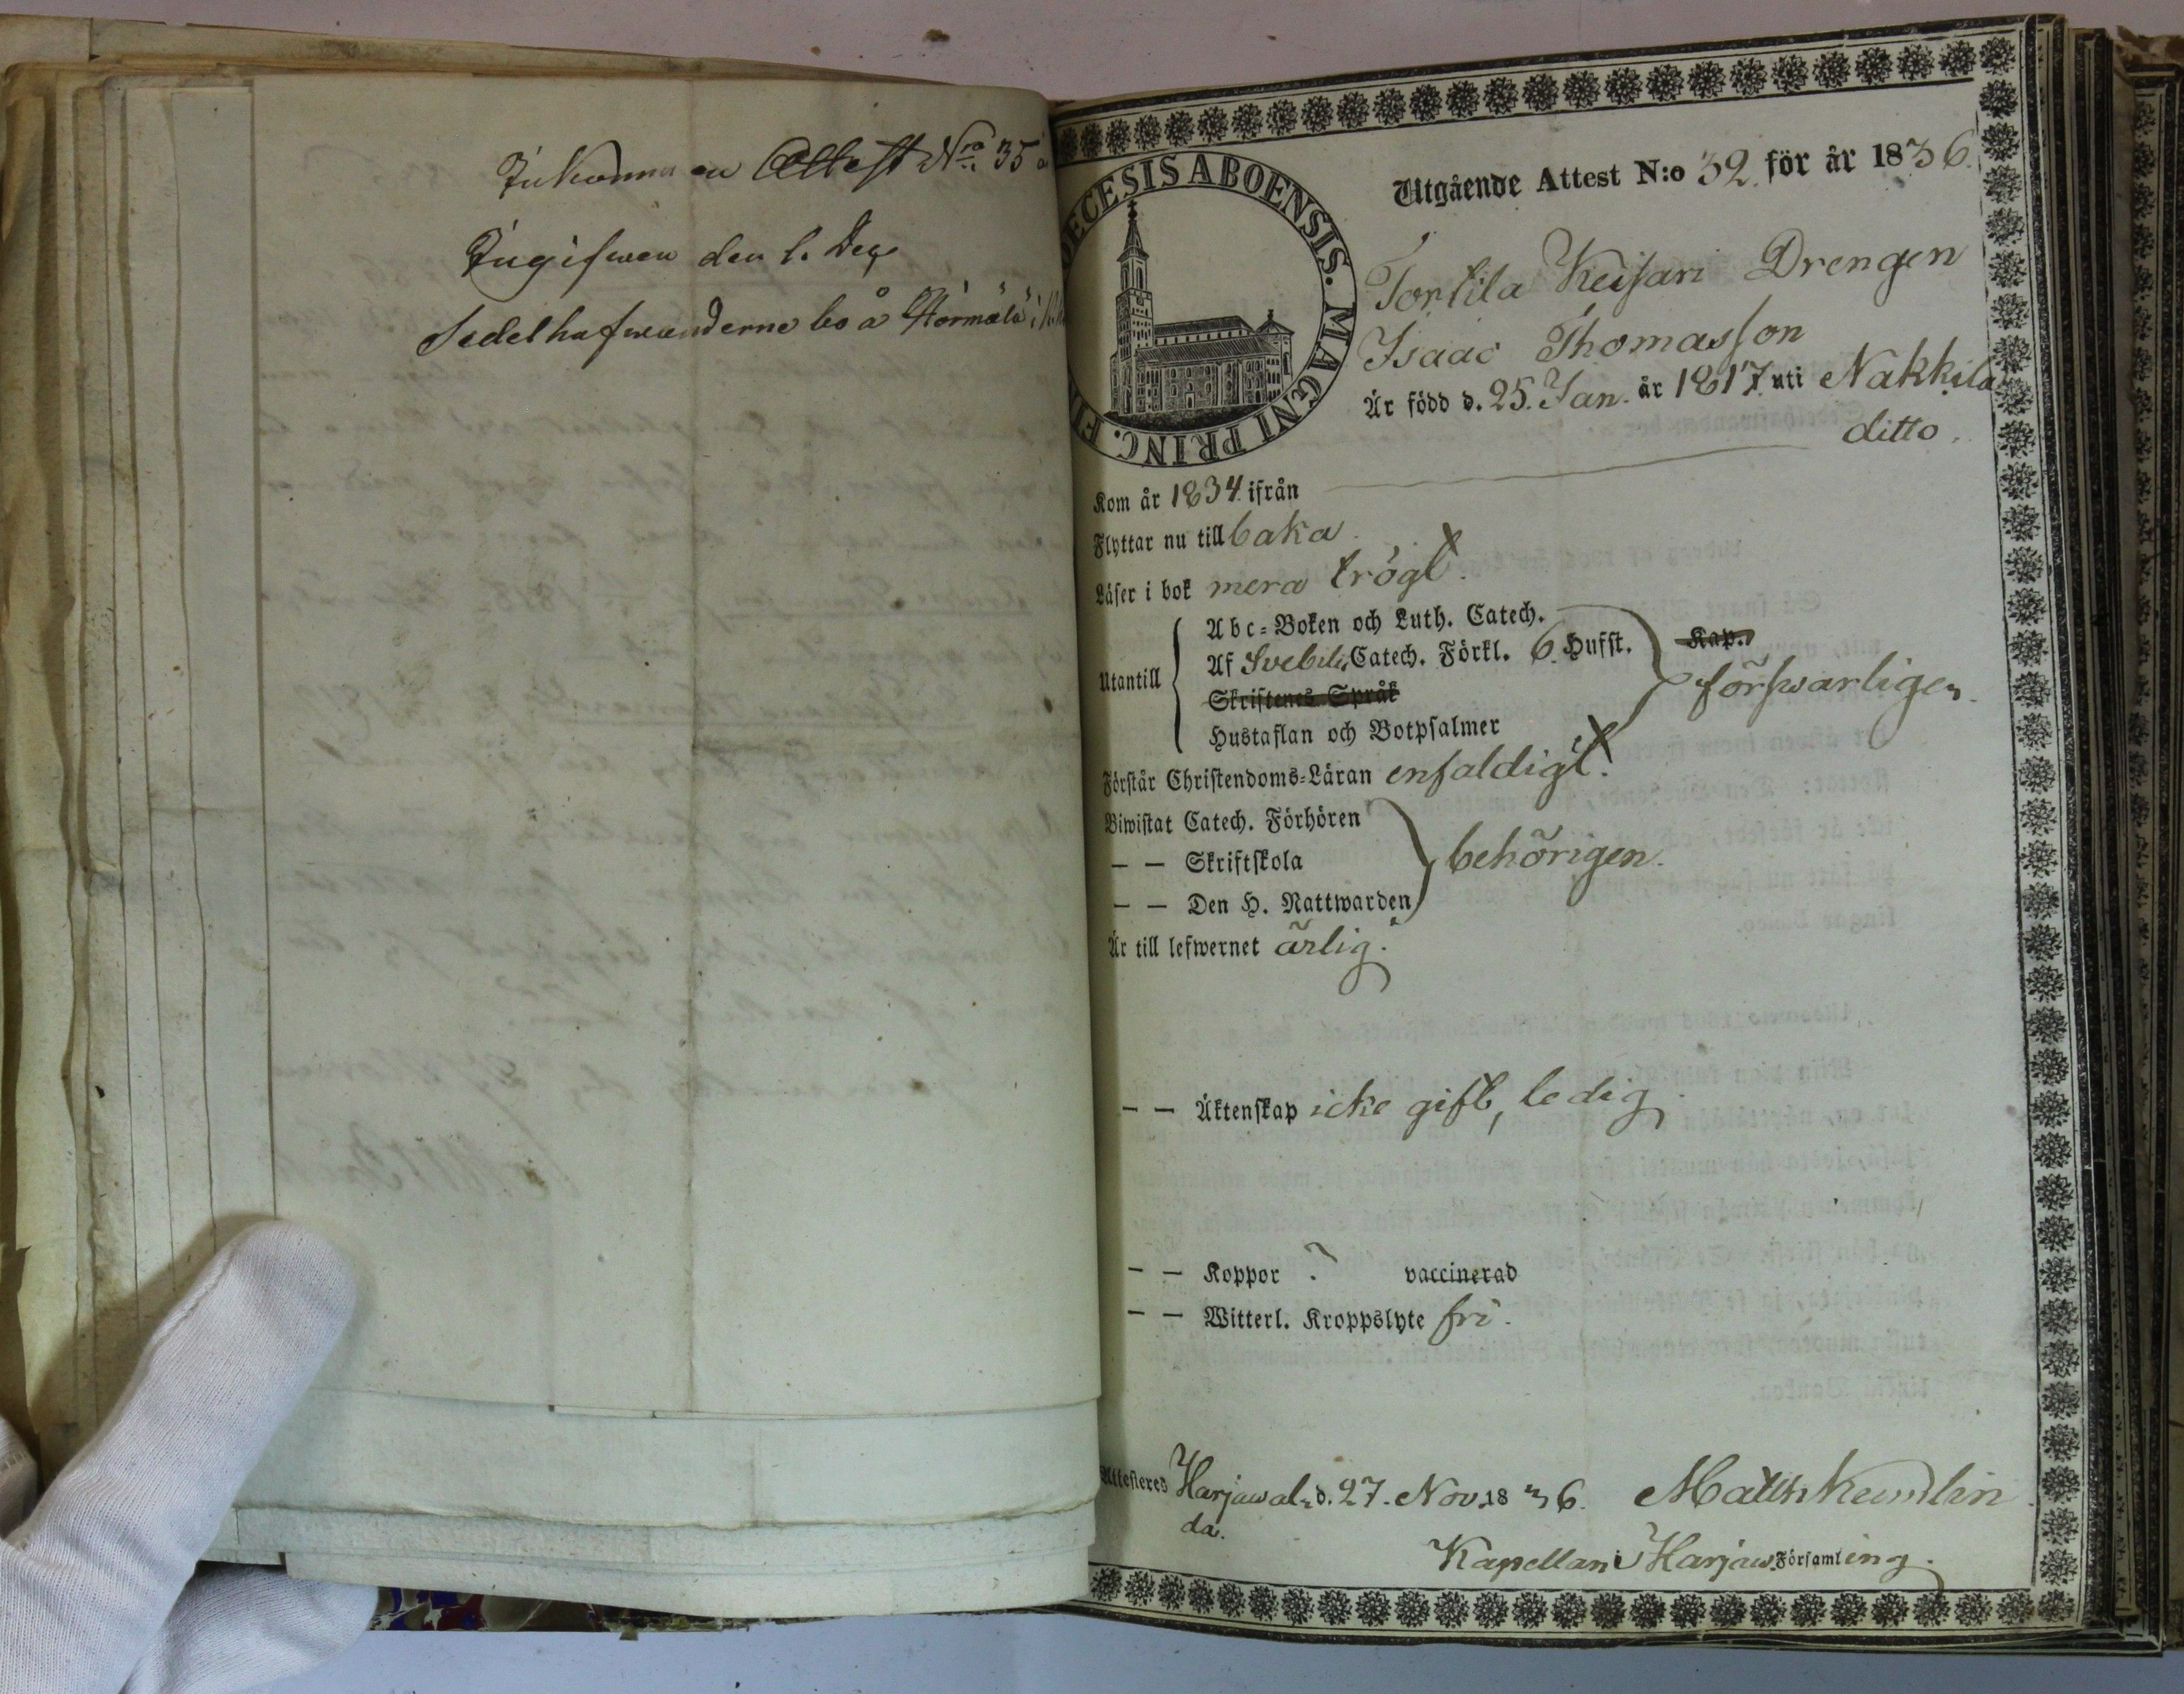 Inkommen Attest Nro 35
Ingifwen den 1. Dec
Sedelhafwanderne bo å
DIOECESIS ABOENSIS. MAGNI PRINC.
Utgående Attest N:o 32. för år 1836.
Torttila Keisari Drengen
Isaac Thomasson
Är född d. 25. Jan. år 1817 uti Nakkila
ditto.
Kom år 1834. ifrån
Flyttar nu till baka.
Läser i bok mera trögt.
Abc-Boken och Luth. Catech.
Utantill Af Svebilii Catech. Förkl. 6. Hufst. Kap.
Skriftenes Språk försvarligen.
Hustaflan och Botpsalmer
Förstår Christendoms-Läran enfaldigt.
Biwistat Catech. Förhören
— — Skriftskola behörigen.
— — Den H. Nattwarden
Är till lefwernet ärlig.
— — Äktenskap icke gift, ledig
— — Koppor ? vaccinerad
— — Witterl. Kroppslyte fri.
Attesteres Harjawal- d. 27. Nov. 1836. Matth
da.
Kapellan i Harjaw. Församling.